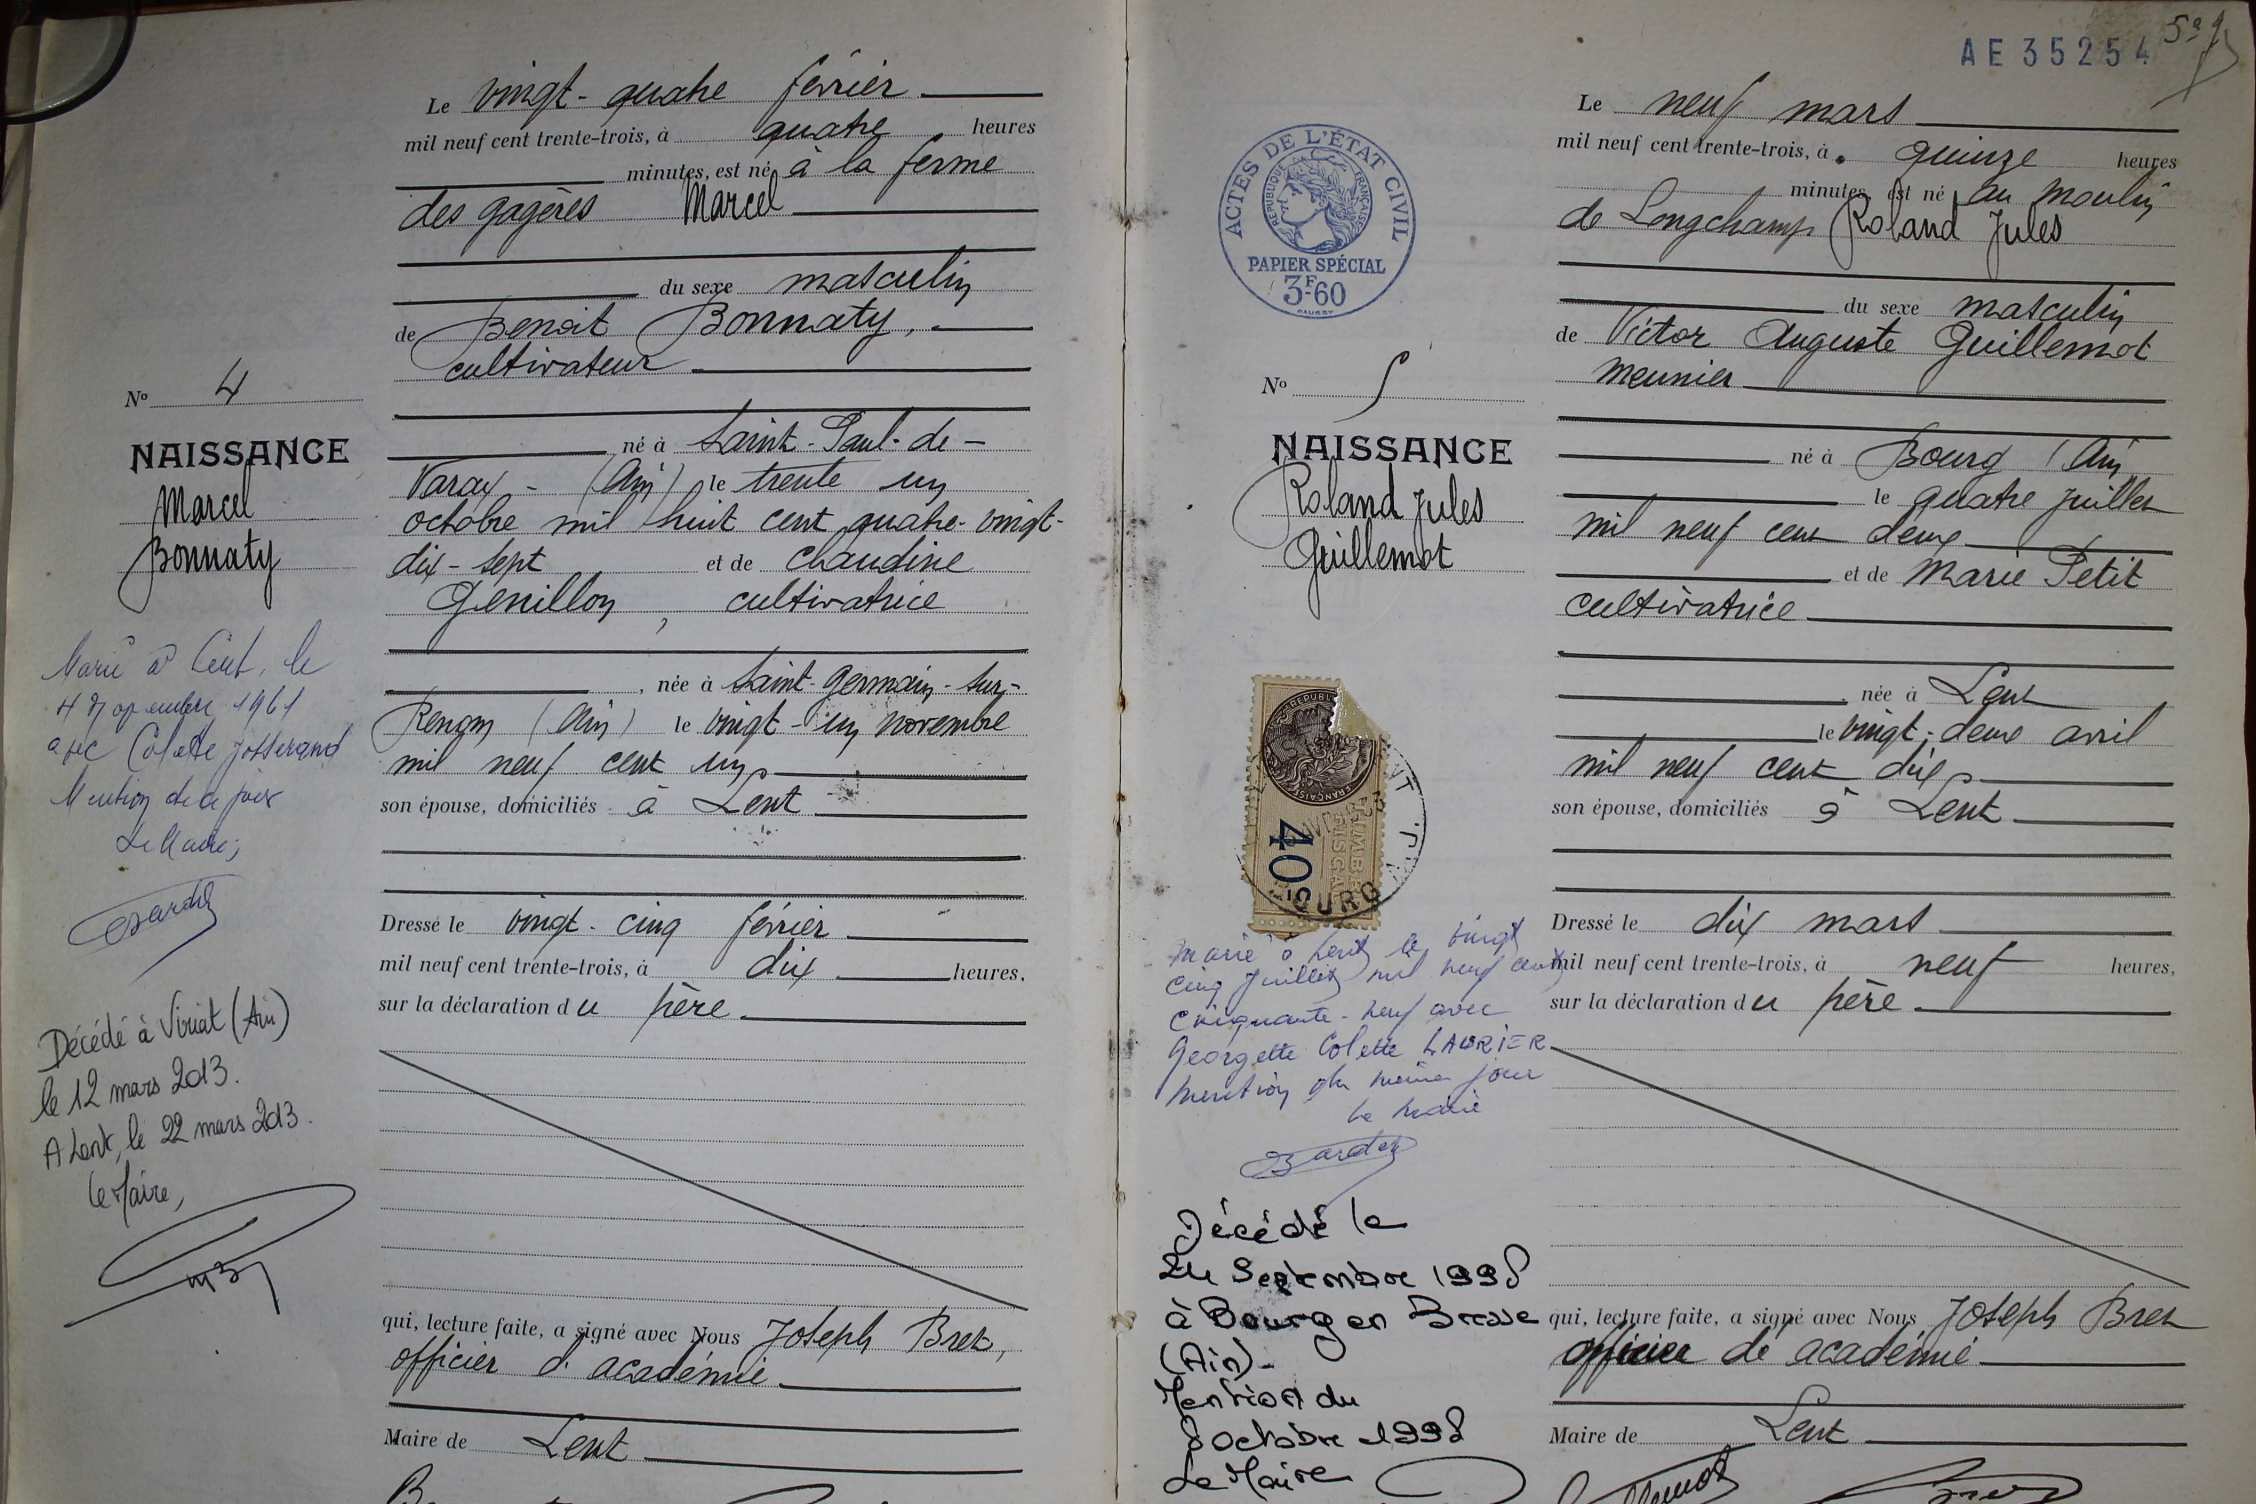 Le vingt-quatre février
mil neuf cent trente-trois, à quatre heures
minutes, est né à la ferme
des gagères Marcel
du sexe masculin
de Benoit Bonnaty,
cultivateur
né à Saint-Paul-de-
Varax - (Ain) le trente un
octobre mil huit cent quatre-vingt-
dix-sept et de Claudine
Genillon, cultivatrice
, née à Saint-Germain-sur-
Renom (Ain) le vingt-un novembre
mil neuf cent un
son épouse, domiciliés à Lent
Dressé le vingt-cinq février
mil neuf cent trente-trois, à dix heures,
sur la déclaration du père
qui, lecture faite, a signé avec Nous Joseph Bret,
officier d'académie
Maire de Lent
No 4
NAISSANCE
Marcel
Bonnaty
Marié à Lent, le
4 novembre 1961
avec Colette Josserand
Mention de ce jour
Le Maire,
Décédé à Viriat (Ain)
le 12 mars 2013.
A Lent, le 22 mars 2013.
Le Maire,
AE 35254
ACTES DE L'ÉTAT CIVIL
RÉPUBLIQUE FRANÇAISE
PAPIER SPÉCIAL
3F-60
Le neuf mars
mil neuf cent trente-trois, à quinze heures
minutes, est né au moulin
de Longchamp Roland Jules
du sexe masculin
de Victor Auguste Guillemot
meunier
né à Bourg (Ain
le quatre juillet
mil neuf cent deux
et de Marie Petit
cultivatrice
née à Lent
le vingt-deux avril
mil neuf cent dix
son épouse, domiciliés à Lent
Dressé le dix mars
mil neuf cent trente-trois, à neuf heures,
sur la déclaration du père
qui, lecture faite, a signé avec Nous Joseph Bret
officier de académie
Maire de Lent
No 5
NAISSANCE
Roland Jules
Guillemot
TIMBRE
FISCAL
40
BOURG
marié à Lent le vingt
cinq juillet mil neuf cent
cinquante-neuf avec
Georgette Colette LAURIER
mention du même jour
Le maire
Décédé le
24 Septembre 1998
à Bourg en Bresse
(Ain)-
Mention du
8 octobre 1998
Le Maire